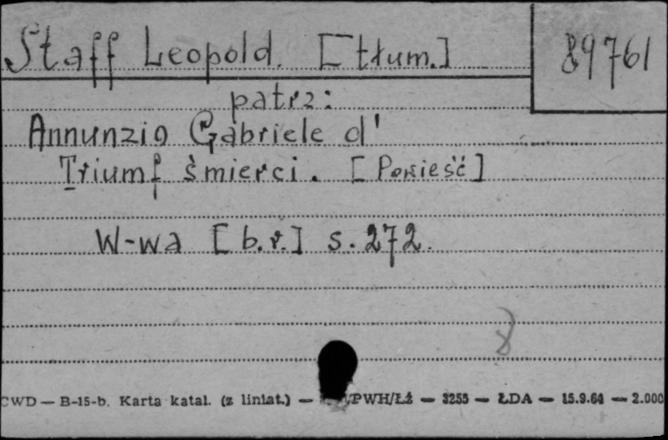 Staff Leopold. [tłum.]
89761
patrz:
Annunzio Gabriele d'
Triumf śmierci. [Powieść]
W-wa [b.r.] s. 272.
8
CWD — B-15-b. Karta katal. (z liniat.) — PWH/Łź — 3255 — ŁDA — 15.9.64 — 2.000